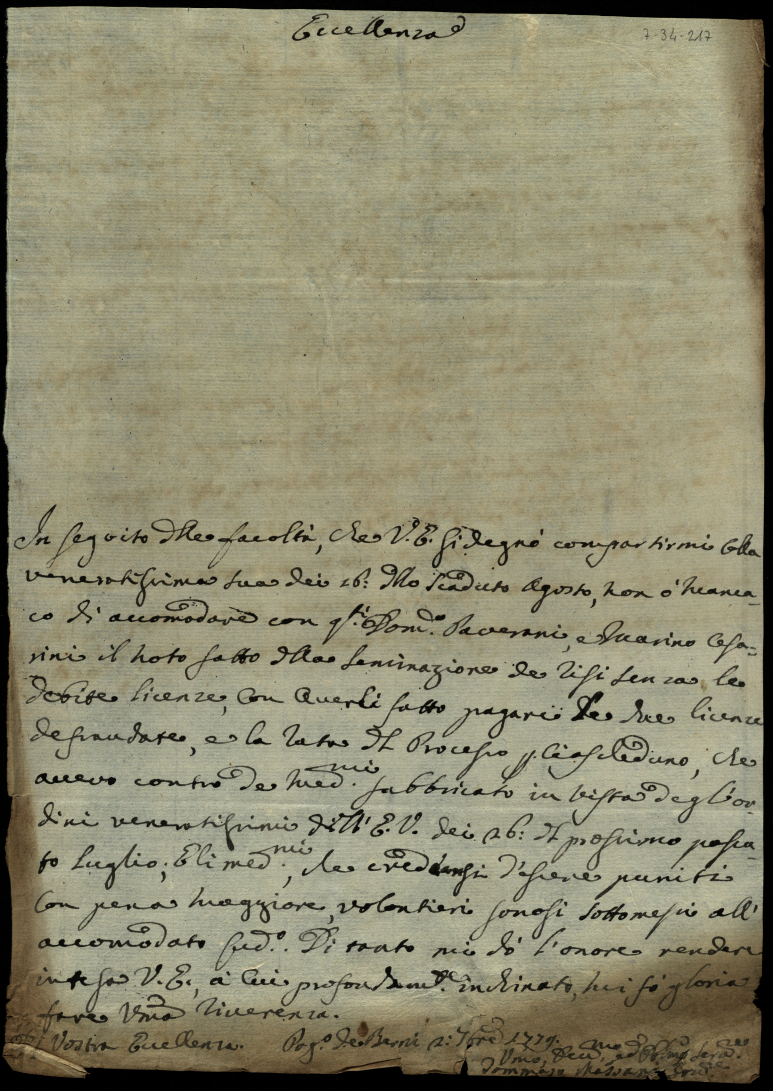 Eccellenza
7-34-217
In seguito dlle facoltà, che V. E. si degnò compartirmi colla
veneratissima sua dei 26: dllo scaduto Agosto, non ò manca-
to di accomodare con qsti Dom.co Paverani, e Marino Cesa-
rini il noto fatto dlla seminazione de risi senza le
debite licenze, con averli fatto pagare le due licenze
defraudate, e la rata dl Processo p ciascheduno, che
avevo contro de med.mi fabbricato in vista degl'or-
dini veneratissimi dell' E. V. dei 26: dl prossimo passa-
to Luglio; E li med.mi, che credeansi d'essere puniti
con pena maggiore, volontieri sonosi sottomessi all'
accomodato sud.o. Di tanto mi dò l'onore rendere
intesa V. E., a cui profondam.te inchinato, mi fò gloria
fare Uma riverenza.
Di Vostra Eccellenza. Pog.o de Berni 2: 7bre 1779.
Umo, Devmo, ed Obbmo Serv.re
Tommaso